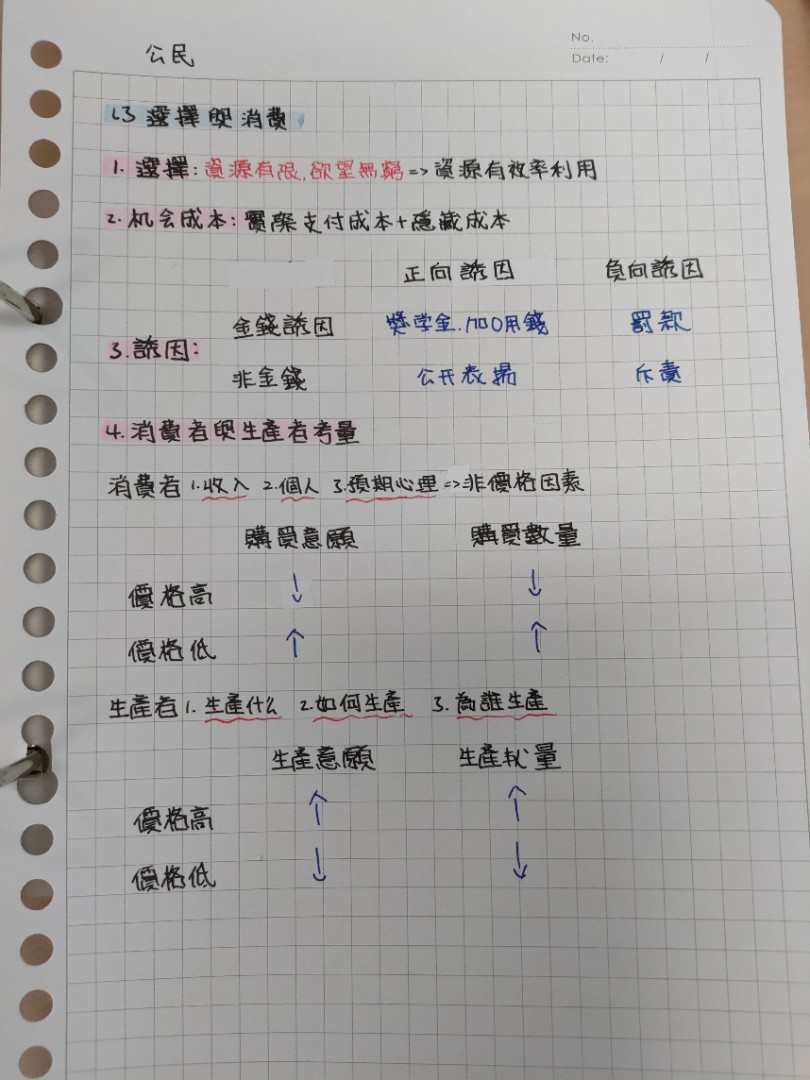 No.
Date: / /
公民
L3 選擇與消費
1. 選擇:資源有限,欲望無窮=>資源有效率利用
2. 机会成本:實際支付成本+隱藏成本
正向誘因 負向誘因
金錢誘因 獎学金.加用錢 罰款
3.誘因:
非金錢 公开表揚 斥責
4.消費者與生產者考量
消費者 1.收入 2.個人 3.預期心理=>非價格因素
購買意願 購買數量
價格高 ↓ ↓
價格低 ↑ ↑
生產者 1.生產什么 2.如何生產 3.為誰生產
生產意願 生產量
價格高 ↑ ↑
價格低 ↓ ↓